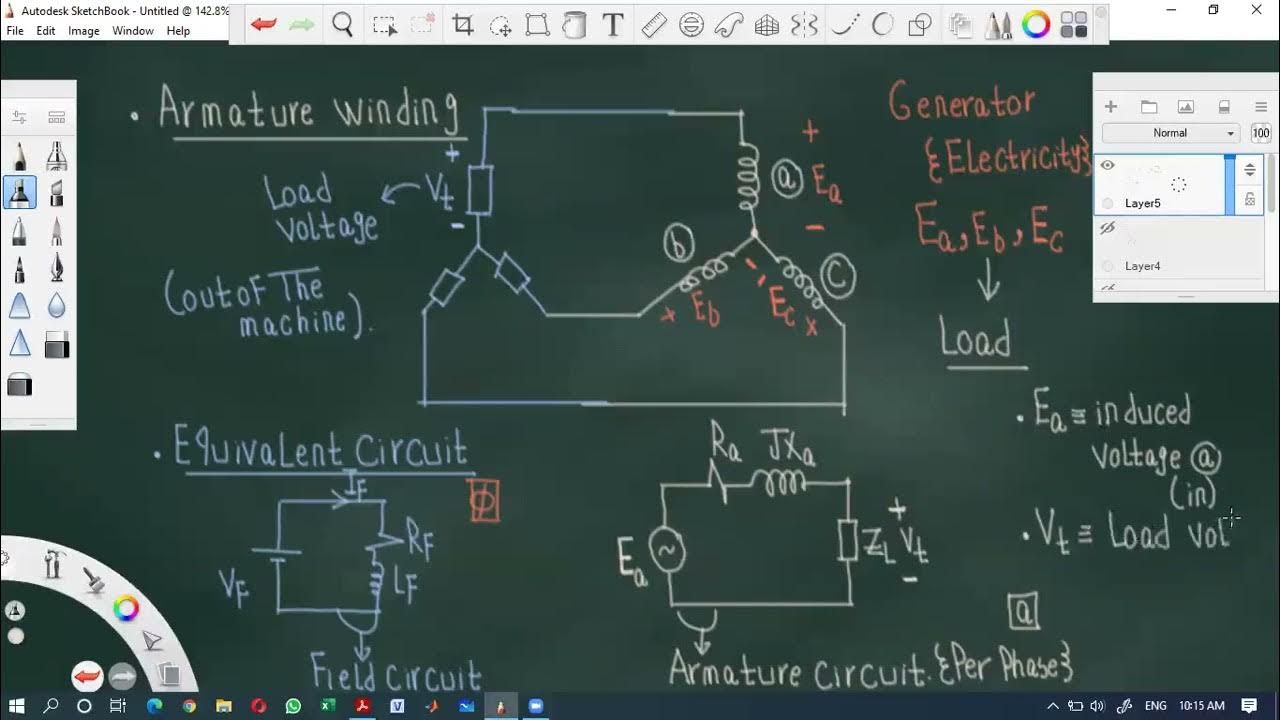 Autodesk SketchBook - Untitled @ 142.8%
File Edit Image Window Help
T
Normal
100
Layer5
Layer4
. Armature winding
+
Vt
-
Load
voltage
(out of The
machine).
+
a Ea
-
b
Eb
x
-
-
c
Ec
x
Generator
{Electricity}
Ea, Eb, Ec
Load
. Ea ≡ induced
voltage a
(in)
. Vt ≡ Load vol
a
. Equivalent circuit
IF
ϕ
VF
RF
LF
Field circuit
Ra JXa
Ea
ZL
+
Vt
-
Armature circuit. {Per Phase}
ENG 10:15 AM